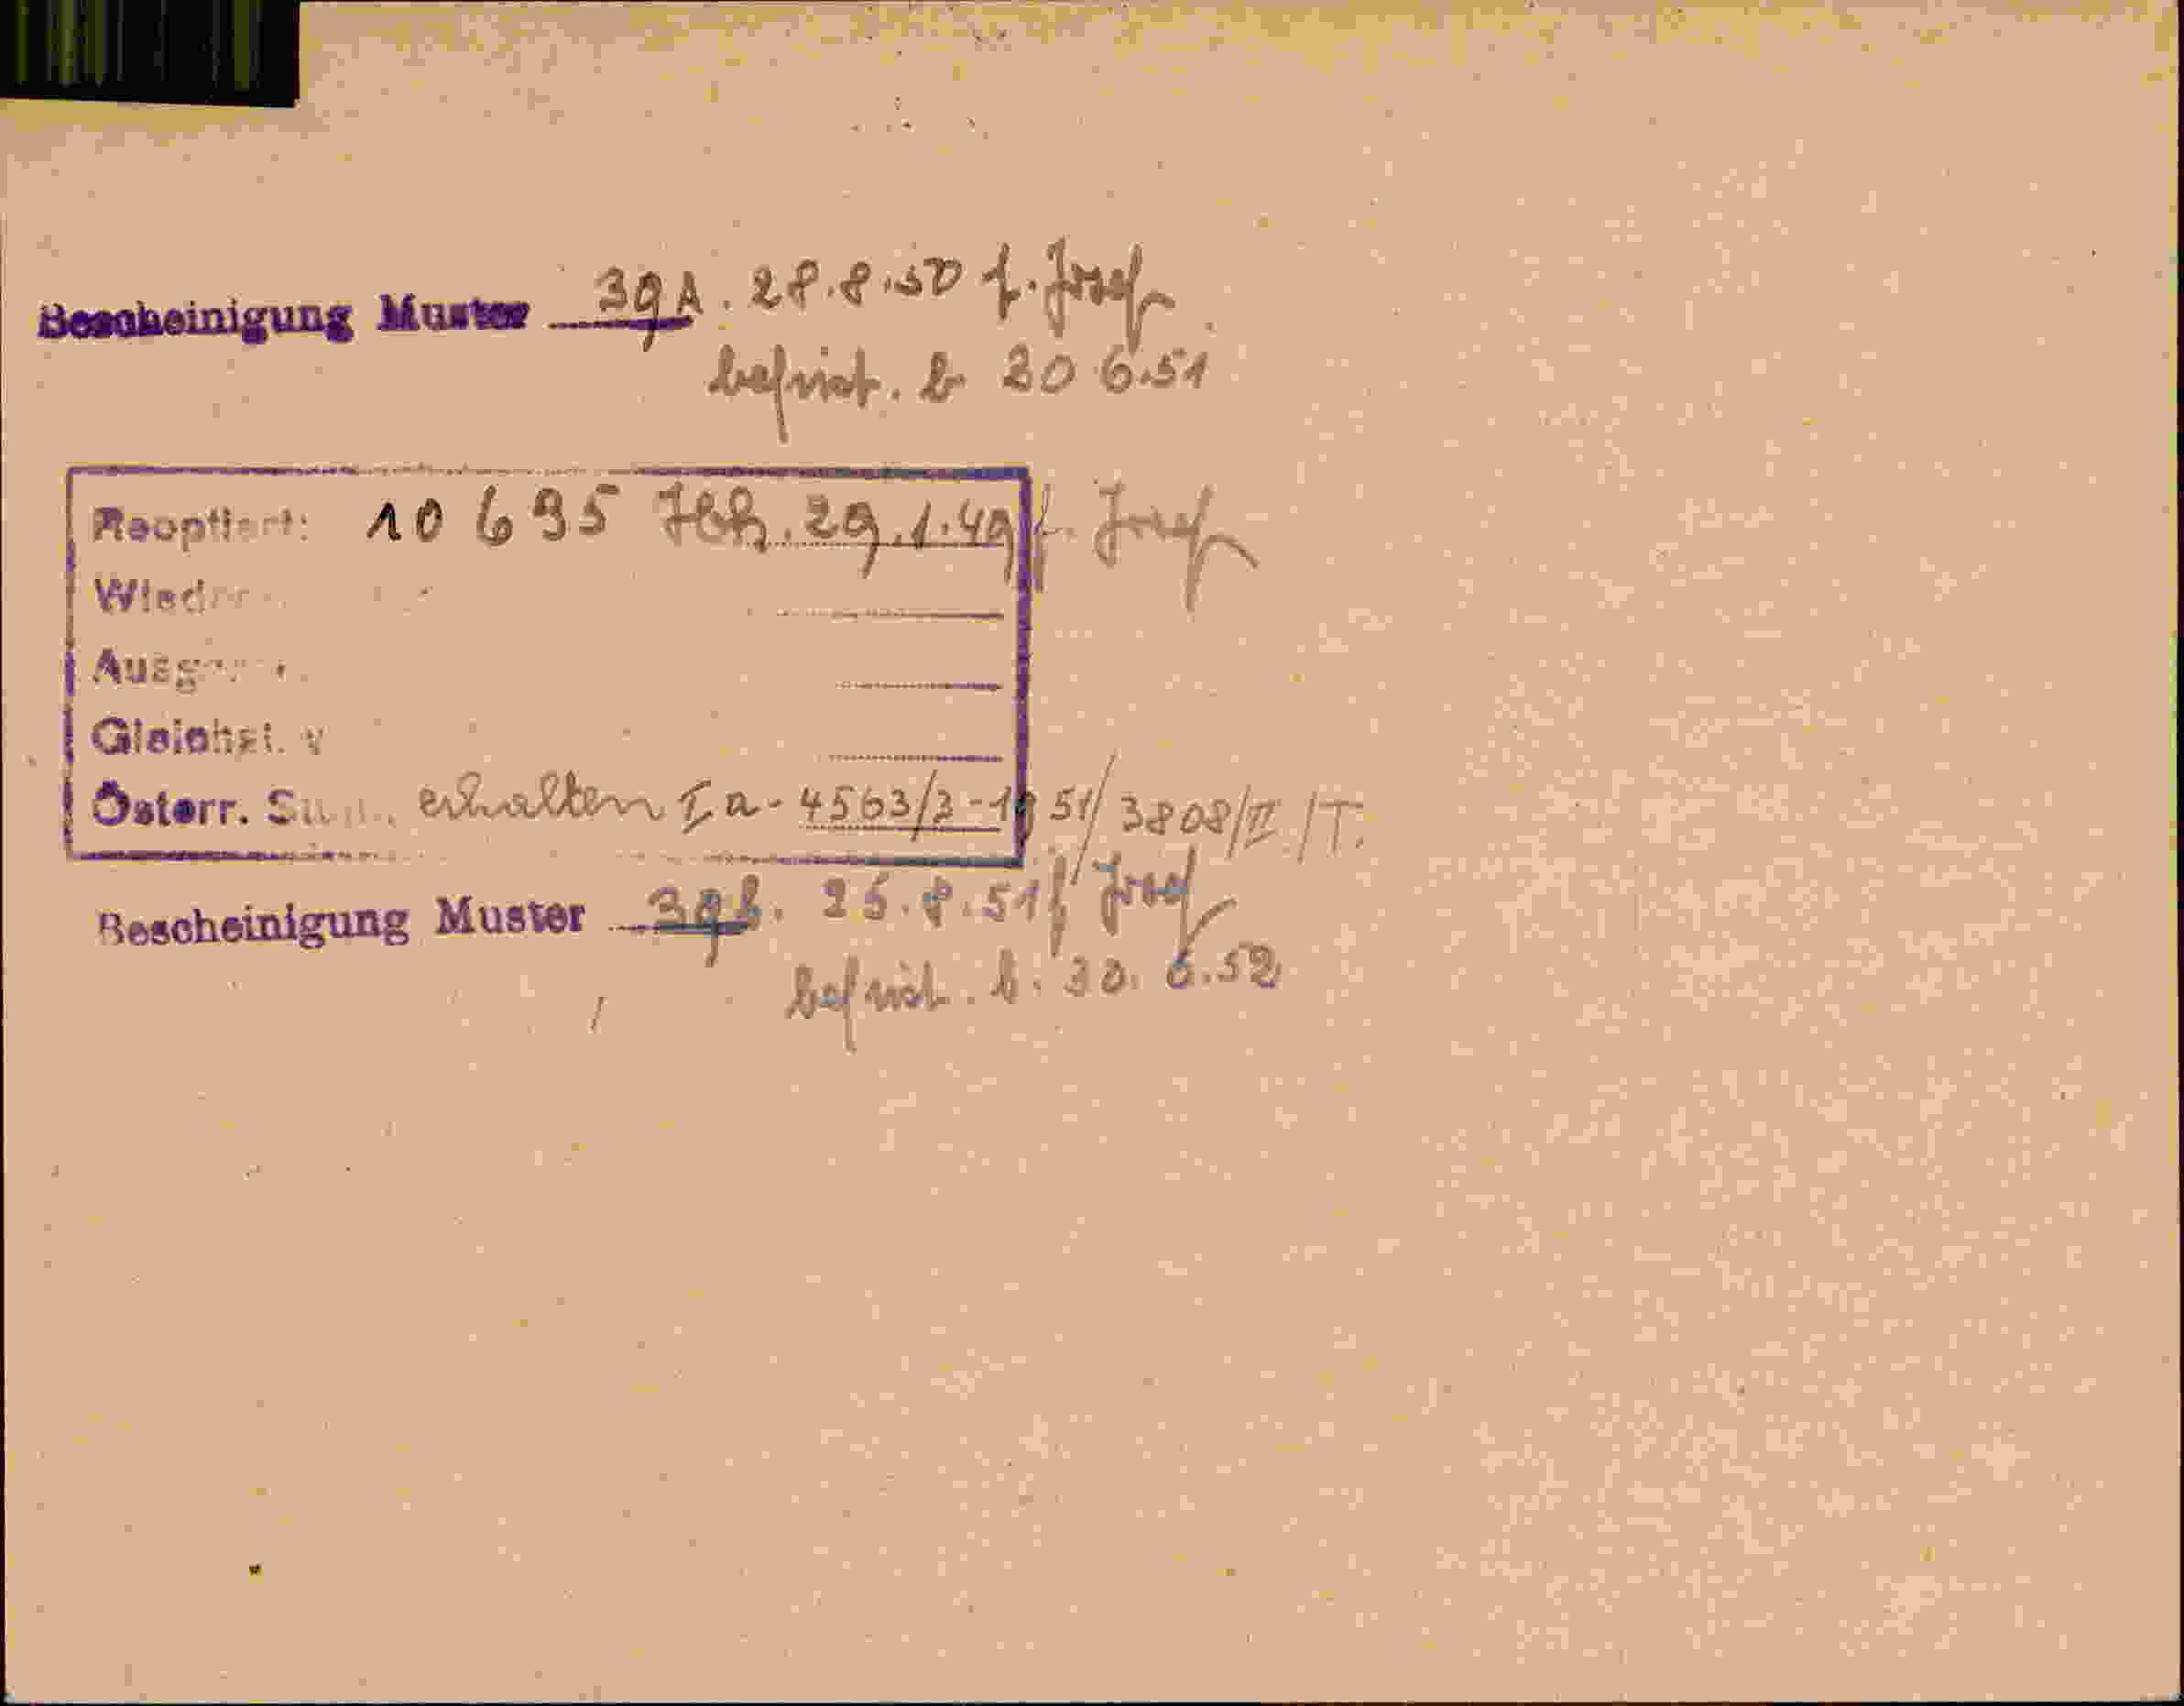 Bescheinigung Muster 39A. 28.8.50 f. Josef
befrist. b 30 6.51
Reoptiert: 10 695 Ibk. 29.1.49 f. Josef
Gleichst. v
Österr. erhalten Ia-4563/3-1951/3808/II/T.
Bescheinigung Muster 39b. 25.8.51 f Josef
befrist. b. 30. 6.52